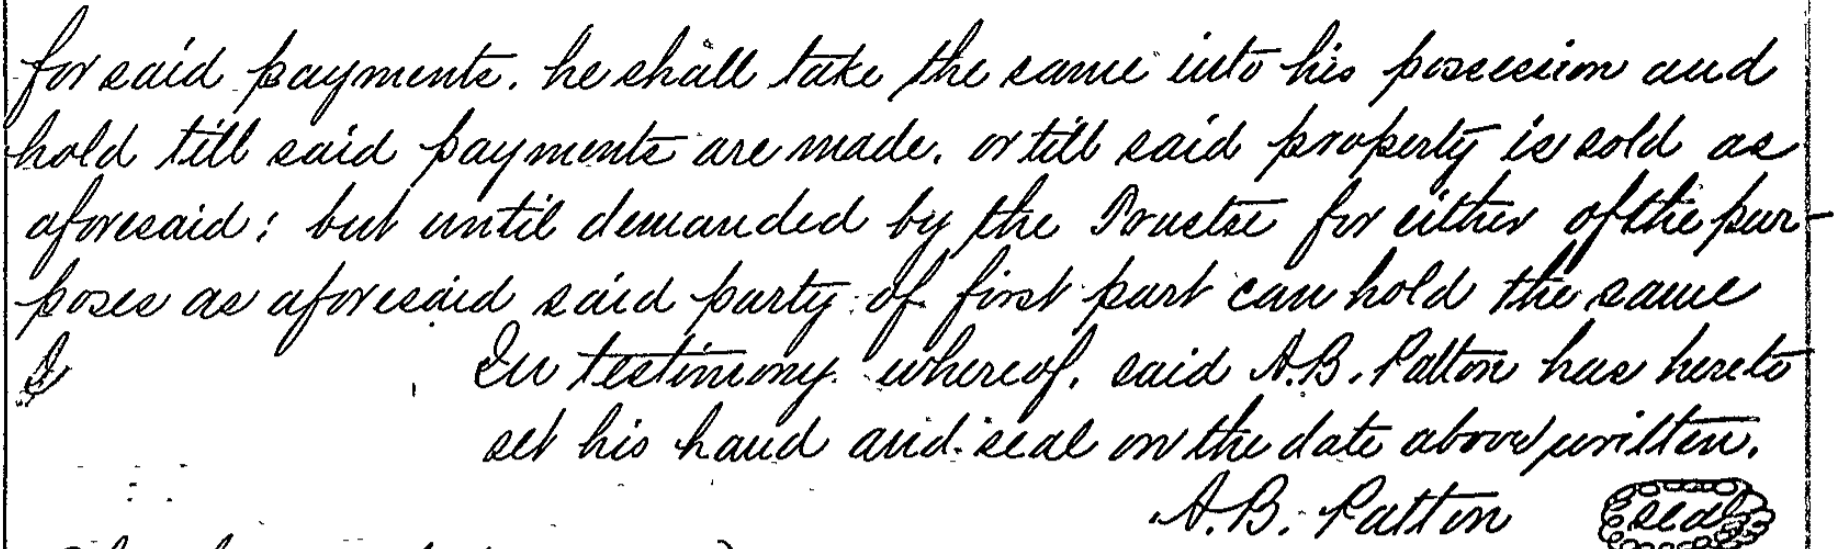 for said payments. he shall take the same into his possession and
hold till said payments are made. or till said property is sold as
aforesaid; but until demanded by the Trustee for either of the pur-
poses as aforesaid said party of first part can hold the same
In testimony whereof. said A.B. Patton has hereto
set his hand and seal on the date above written.
A.B. Patton seal